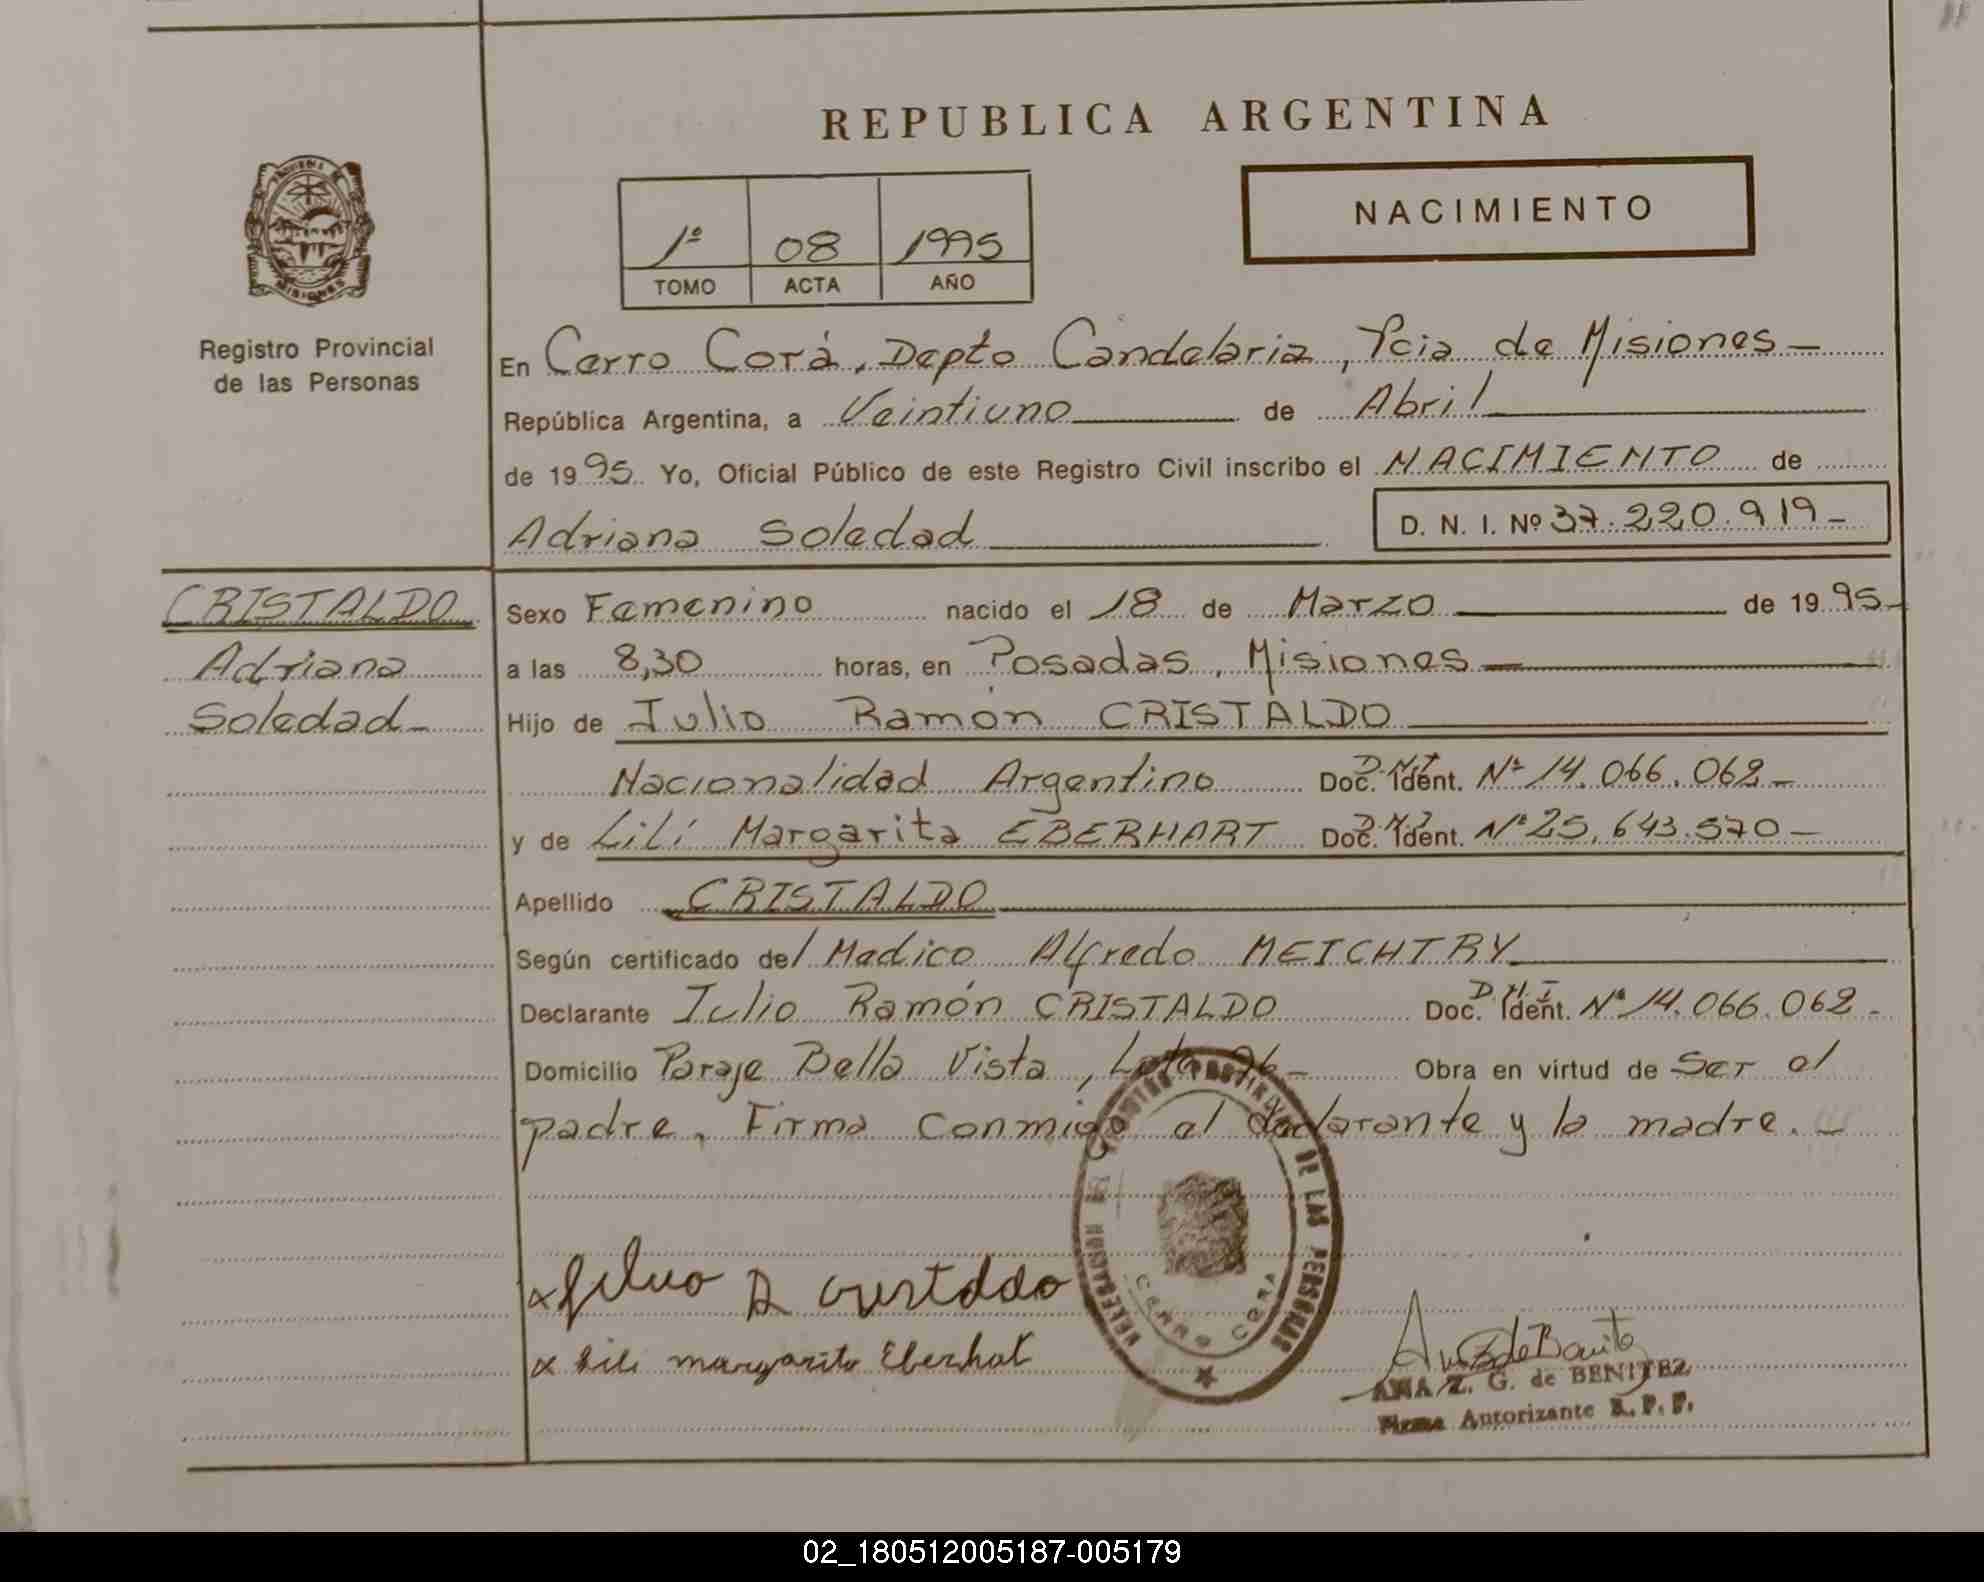 REPUBLICA ARGENTINA
NACIMIENTO
1º 08 1995
TOMO ACTA AÑO
MISIONES
Registro Provincial
de las Personas
En Cerro Corá, Depto Candelaria, Pcia de Misiones –
República Argentina, a Veintiuno de Abril
de 1995 Yo, Oficial Público de este Registro Civil inscribo el NACIMIENTO de
Adriana Soledad D. N. I. Nº 37.220.919 –
CRISTALDO
Adriana
Soledad –
Sexo Femenino nacido el 18 de Marzo de 1995 –
a las 8,30 horas, en Posadas, Misiones –
Hijo de Julio Ramón CRISTALDO
Nacionalidad Argentino Doc. Ident. D.N.I Nº 14.066.062 –
y de Lilí Margarita EBERHART Doc. Ident. D.N.I Nº 25.643.570 –
Apellido CRISTALDO
Según certificado del Medico Alfredo MEICHTRY
Declarante Julio Ramón CRISTALDO Doc. Ident. D.N.I Nº 14.066.062 –
Domicilio Paraje Bella Vista, Lote 96 – Obra en virtud de Ser el
padre. Firma Conmigo el declarante y la madre. –
DELEGACION REGISTRO PROVINCIAL DE LAS PERSONAS
CERRO CORA
x Julio R Cristaldo
x Lili margarita Eberhat
Ana Z de Benitez
ANA Z. G. de BENITEZ
Firma Autorizante R. P. P.
02_180512005187-005179